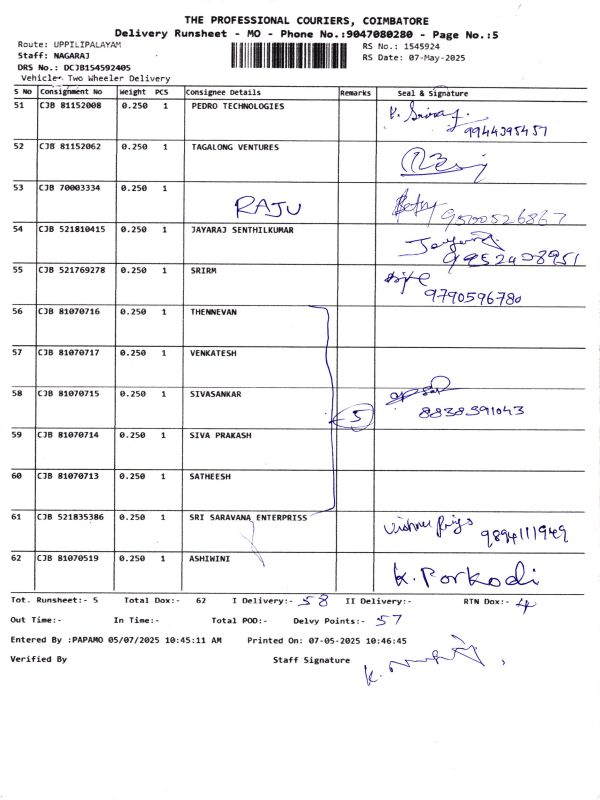 THE PROFESSIONAL COURIERS, COIMBATORE
Delivery Runsheet - MO - Phone No.:9047080280 - Page No.:5
Route: UPPILIPALAYAM RS No.: 1545924
Staff: NAGARAJ RS Date: 07-May-2025
DRS No.: DCJB154592405
Vehicle- Two Wheeler Delivery
S No Consignment No Weight PCS Consignee Details Remarks Seal & Signature
51 CJB 81152008 0.250 1 PEDRO TECHNOLOGIES
9944395457
52 CJB 81152062 0.250 1 TAGALONG VENTURES
53 CJB 70003334 0.250 1
RAJU 9500526867
54 CJB 521810415 0.250 1 JAYARAJ SENTHILKUMAR
9952408951
55 CJB 521769278 0.250 1 SRIRM
9790596780
56 CJB 81070716 0.250 1 THENNEVAN
57 CJB 81070717 0.250 1 VENKATESH
58 CJB 81070715 0.250 1 SIVASANKAR
5 8838391043
59 CJB 81070714 0.250 1 SIVA PRAKASH
60 CJB 81070713 0.250 1 SATHEESH
61 CJB 521835386 0.250 1 SRI SARAVANA ENTERPRISS
9894111949
62 CJB 81070519 0.250 1 ASHIWINI
K. Porkodi
Tot. Runsheet:- 5 Total Dox:- 62 I Delivery:- 58 II Delivery:- RTN Dox:- 4
Out Time:- In Time:- Total POD:- Delvy Points:- 57
Entered By :PAPAMO 05/07/2025 10:45:11 AM Printed On: 07-05-2025 10:46:45
Verified By Staff Signature